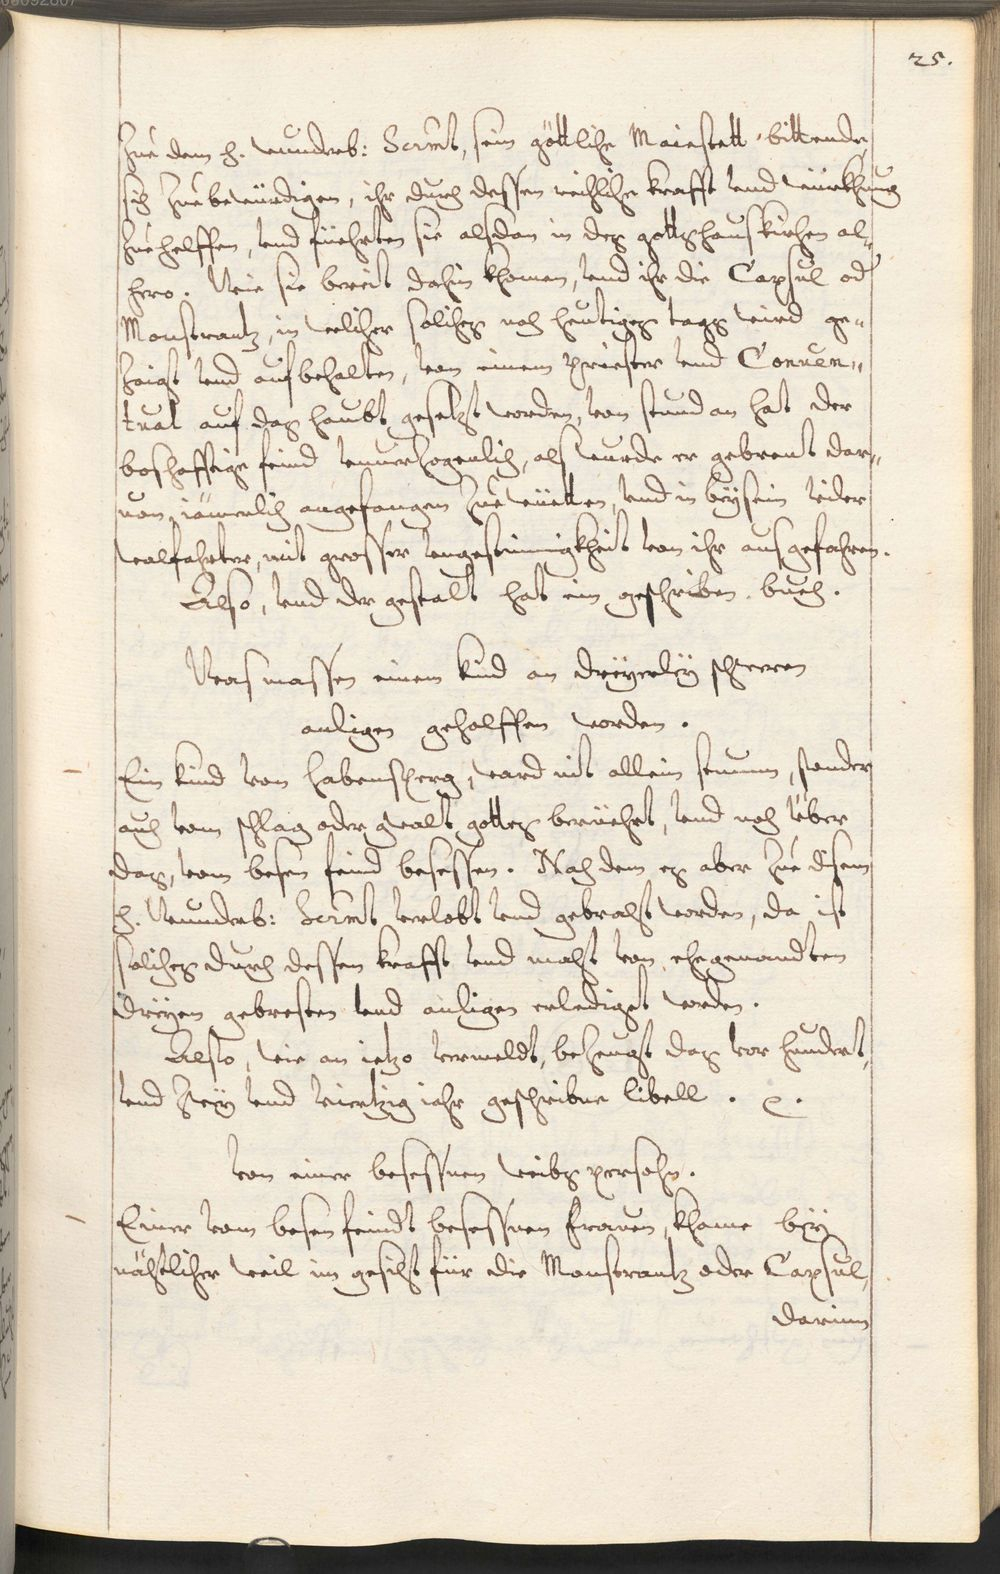 25.
Zue dem h. wunderb: Scrmt, sein göttliche Maiestett bittende,
sich Zue bewürdigen, ihr durch dessen reichliche krafft vnd würkhung
Zuehelffen, vnd füehrten sie alsdan in des gottshauskirchen al-
hero. Wie sie bereit dahin khomen, vnd ihr die Capsul od
Monstrantz, in welicher soliches noch heutiges tags wird ge-
Zaigt vnd aufbehalten, von einem priester vnd Conuen-
tual auf das haubt gesetzt worden, von stund an hat der
boshafftige feind vnuerzogenlich, als wurde er gebrent dar-
uon, iämerlich angefangen Zue wüetten, vnd in beysein viler
walfahrter, mit grosser vngestimigkheit von ihr ausgefahren.
Also, vnd der gestalt hat ein geschriben buech.
Was massen einem kind an dreyerley schweren
anligen geholffen worden.
Ein kind von habensperg, ward nit allein stumm, sonder
auch vom schlag oder gwalt gottes berüehrt, vnd noch über
das, vom besen feind besessen. Nach dem es aber Zue disem
h. Wunderb: Scrmt verlobt vnd gebracht worden, da ist
soliches durch dessen krafft vnd macht von ehegenandten
dreyen gebresten vnd anligen erlediget worden.
Also, wie an ietzo vermeldt, beZeugt das vor hundert,
vnd Zwey vnd viertzig iahr geschribne libell.
Von einer besessnen weibs persohn.
Einer vom besen feindt besessnen frauen, khame bey
nächtlicher weil im gesicht für die Monstrantz oder Capsul,
darinn